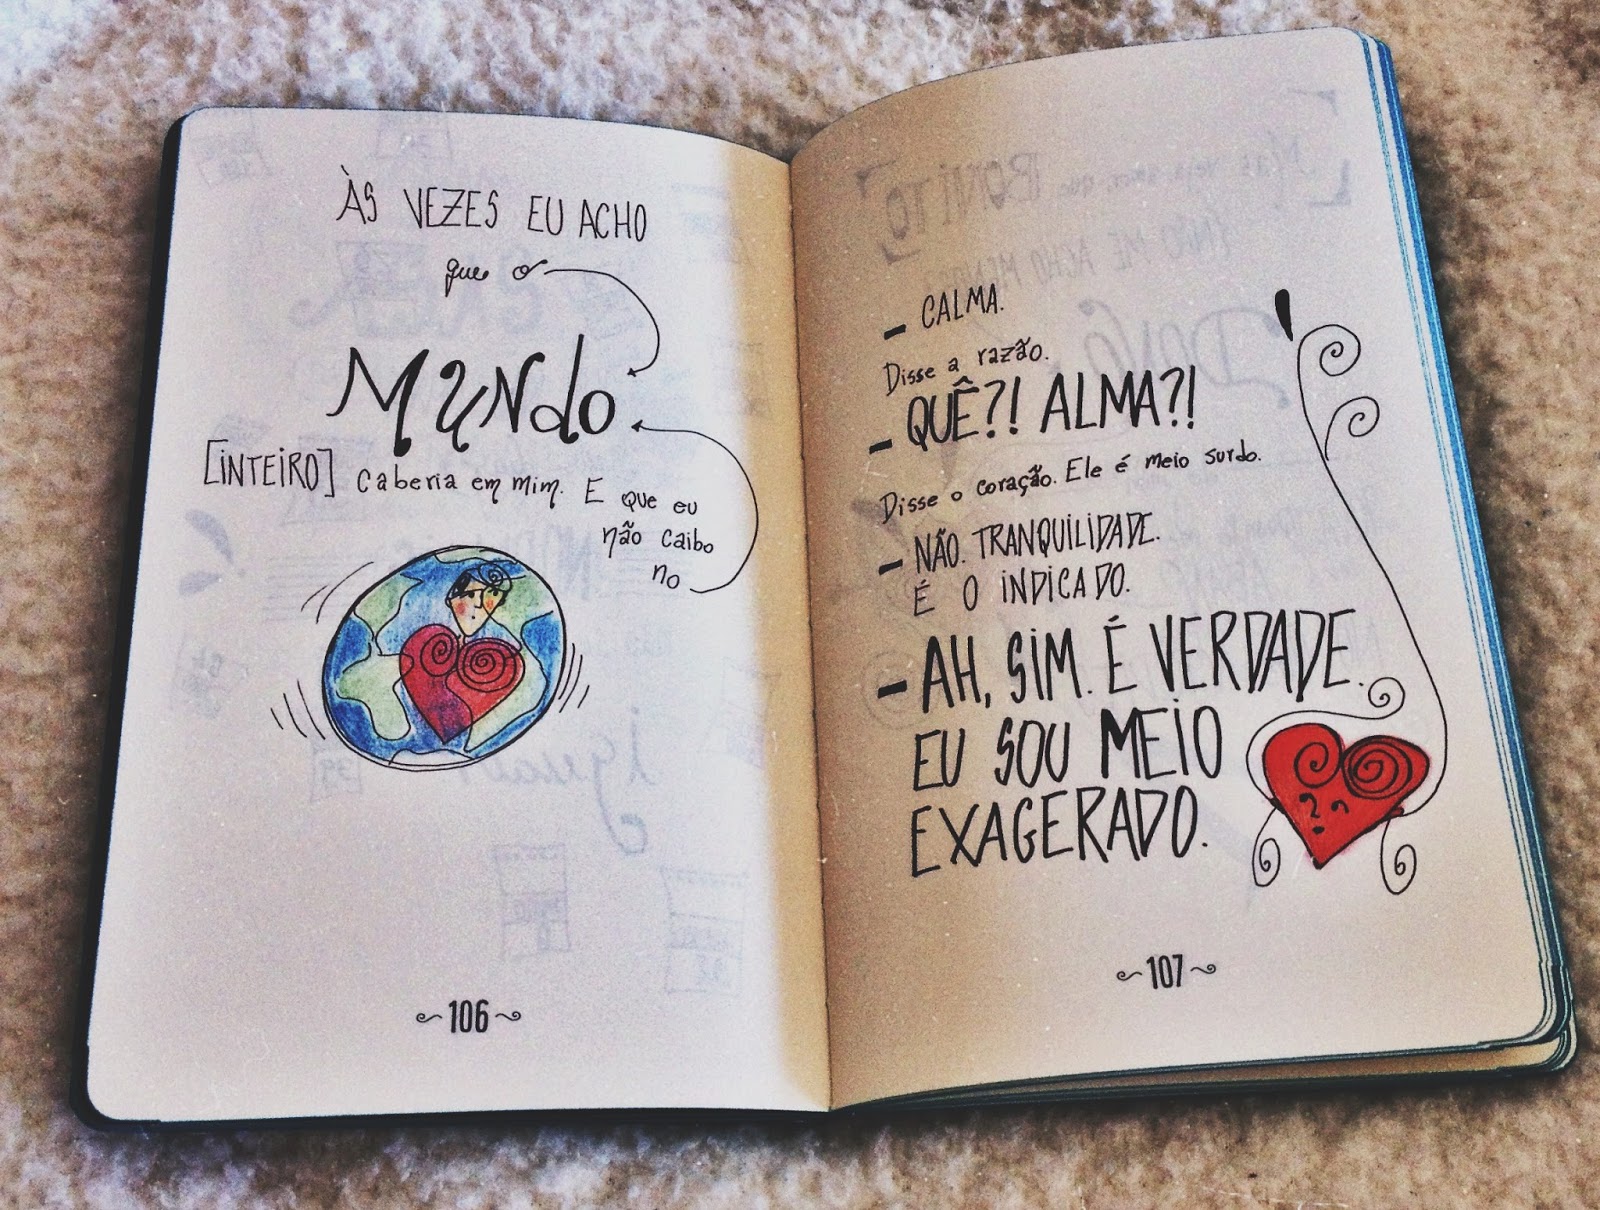 ÀS VEZES EU ACHO
que o
MUNdo
[INTEIRO] caberia em mim. E que eu
não caibo
no
106
- CALMA.
Disse a razão.
- QUÊ?! ALMA?!
Disse o coração. Ele é meio surdo.
- NÃO. TRANQUILIDADE.
É O INDICADO.
- AH, SIM. É VERDADE.
EU SOU MEIO
EXAGERADO.
107